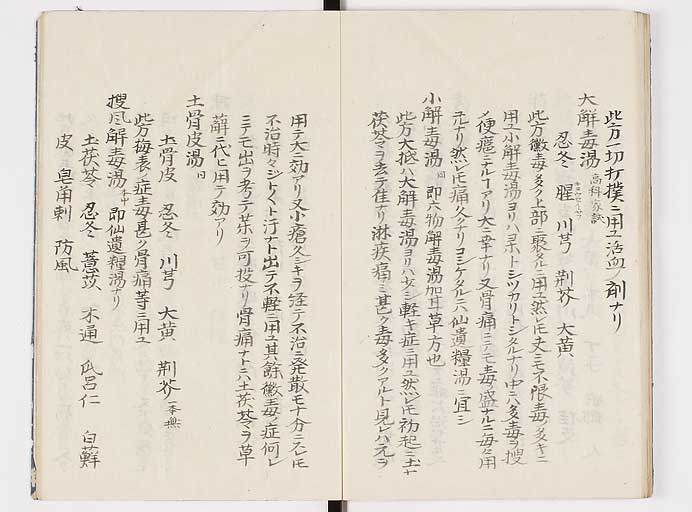 此方一切打撲ニ用ユ活血ノ剤ナリ
大解毒湯 高科家试
忍冬 川芎 荊芥 大黄
此方黴毒多ク上部ニ聚タルニ用ユ然レ𪜈丈ニモ不限毒ノ多キニ
用ユ小解毒湯ヨリハヨホトシツカリトシタルナリ中ニハ多毒ヲ捜
ノ便癒ニナルヿアリ大ニ幸ナリ又骨痛ニテモ毒ノ盛ナルニ毎々用
元ナリ然レ𪜈痛久ナリヨシケタルニハ仙遺糧湯ニ宜シ
小解毒湯 同 即六物解毒湯加甘草方也
此方大抵ハ大解毒湯ヨリハ少シ軽キ症ニ用ユ然レ𪜈初起ニ土ナ
茯苓ヲ去テ佳ナリ淋疾痛ミ甚ク毒多クアルト見レハ元ヲ
用テ大ニ効アリ又小瘡久シキヲ経テ不治ニ発散モ十分ニスレ𪜈
不治時々ジトジト汗ナト出テ不軽ニ用ユ其餘黴毒ノ症何レ
ニテモ出ヲ考テ某ヲ可投ナリ骨痛ナトニハ土茯苓ヲ草
薢ニ代ヒ用テ効アリ
土骨皮湯 同
土骨皮 忍冬 川芎 大黄 荊芥 一本無
此方梅表ノ症毒甚ク骨痛等ニ用ユ
搜風解毒湯 即仙遺糧湯ナリ
土茯苓 忍冬 薏苡 木通 瓜呂仁 白蘚
皮 皂角刺 防風